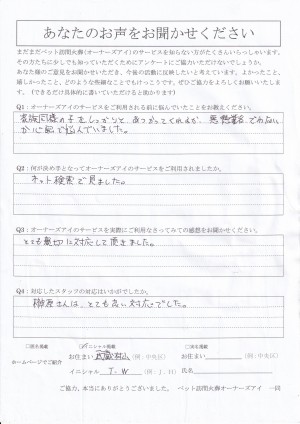 あなたのお声をお聞かせください
まだまだペット訪問火葬(オーナーズアイ)のサービスを知らない方がたくさんいらっしゃいます。
その方たちに少しでも知っていただくためにアンケートにご協力いただけないでしょうか。
あなた様のご意見をお聞かせいただき、今後の活動に反映したいと考えています。よかったこと、
嬉しかったこと、どのような些細なことでもけっこうです。ぜひご協力をよろしくお願いいたしま
す。(できるだけ具体的に書いていただけると助かります)
Q1：オーナーズアイのサービスをご利用される前に悩んでいたことをお教えください。
家族同様の子をしっかりと、あつかってくれるか、悪徳業者でわないか
心配で悩んでいました。
Q2：何が決め手となってオーナーズアイのサービスをご利用されましたか。
ネット検索で見ました。
Q3：オーナーズアイのサービスを実際にご利用なさってみての感想をお聞かせください。
とても親切に対応して頂きました。
Q4：対応したスタッフの対応はいかがでしたか。
榊原さんは、とても良い対応でした。
イニシャル掲載
ホームページでご紹介
お住まい 武蔵村山 (例：中央区)
お住まい (例：中央区)
イニシャル T.W (例：J.H)
氏名
ご協力、本当にありがとうございました。 ペット訪問火葬オーナーズアイ 一同